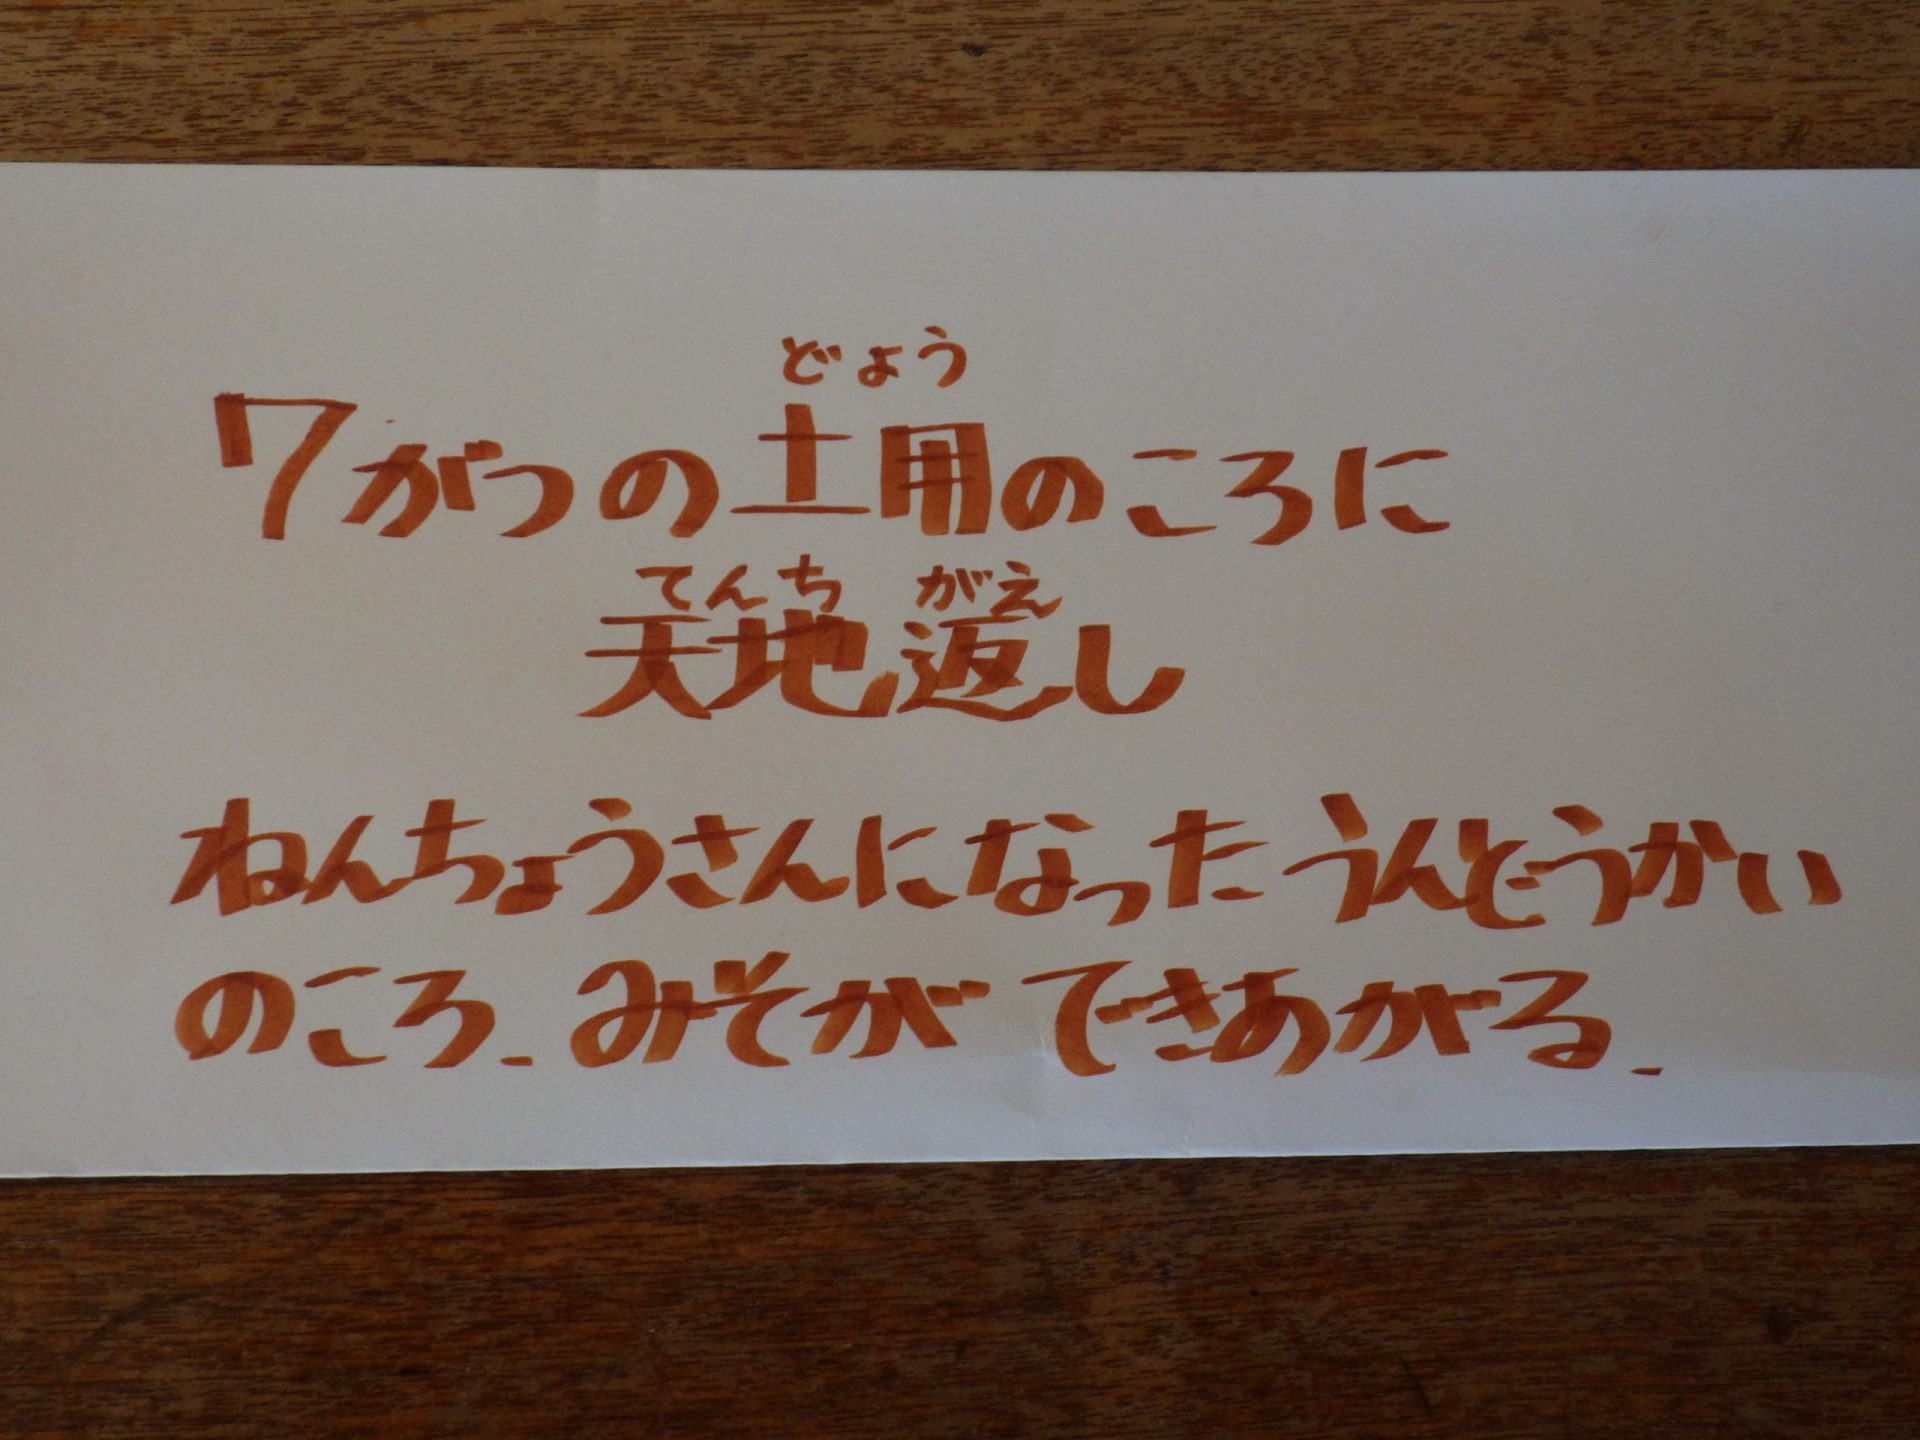 どよう
7がつの土用のころに
てんち がえ
天地返し
ねんちょうさんになった うんどうかい
のころ、みそが できあがる、